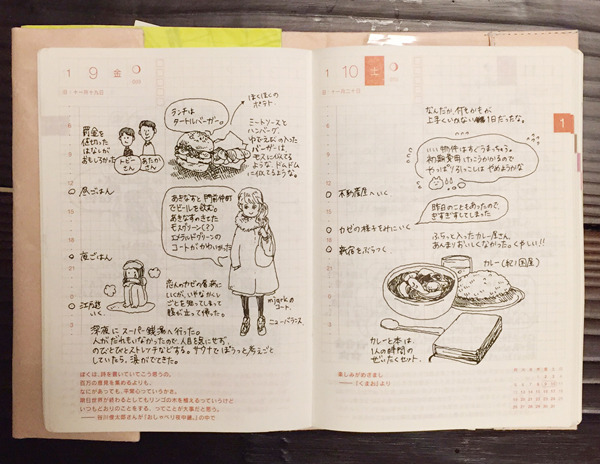 1 9 金
ランチは
タートルバーガー。
ほくほくの
ポテト
ミートソースと
ハンバーグ、
ゆでえびの入った
バーガーは、
モスに似てる
ような、ドムドム
に似てるような。
罰金を
値切った
はなしが
おもしろかった
トビーさん
あたかさん
昼ごはん
あきなすと門前仲町
でビールを飲む。
あきなすのきてた
モスグリーン(?)
エメラルドグリーンの
コートがかわいかった
夜ごはん
恋人のカゼの看病に
いくが、いけなかくし
ごとを知ってしまって
腹が立って帰った。
mjgrkの
コート。
ニューバランス
いく
深夜にスーパー銭湯へ行った。
人がだれもいなかったので、人目を気にせず、
のびのびとストレッチなどする。サウナでぼうっと考えごと
していたら、涙がでてきた。
ぼくは、詩を書いていてこう思うの。
百万の意見を集めるよりも、
なにがあっても、平常心っていうかさ。
明日世界が終わるとしてもリンゴの木を植えるっていうけど
いつもどおりのことをする、ってことが大事だと思う。
―― 谷川俊太郎さんが『おしゃべり夜中継。』の中で
1 10 土
1
なんだか、何もかもが
上手くいかない1日だったな。
いい物件はすぐうまっちゃう。
初期費用けっこうかかるので
やっぱり引っこしはやめようかな
不動産屋へいく
昨日のこともあったので、
ぎすぎすしてしまった
カゼの様子をみにいく
新宿をぶらつく
ふらっと入ったカレー屋さん
あんまりおいしくなかった。くやしい!!
カレー(紀ノ国屋)
カレーと本は、
1人の時間の
ぜいたくセット。
楽しみがめざまし
―― 『くまお』より